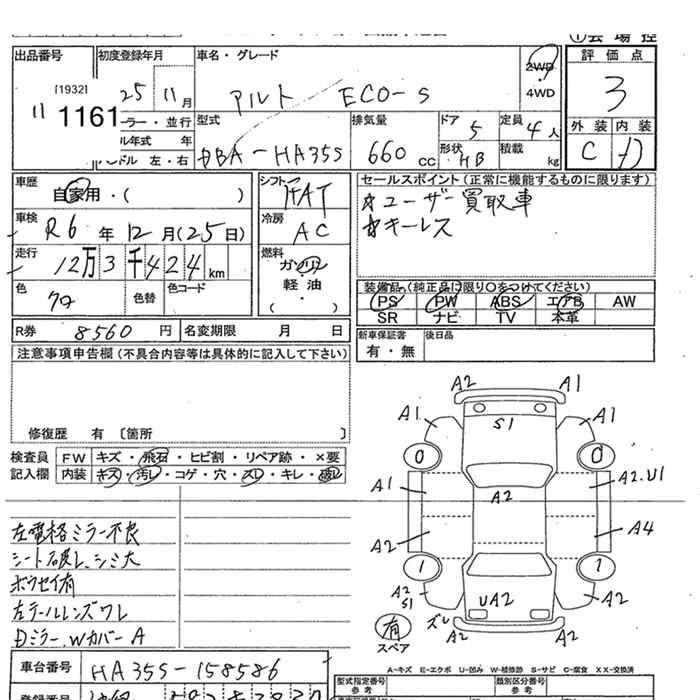 ①会場控
出品番号
[1932]
11 1161
初度登録年月
25 11 月
車名・グレード
アルト ECO-S
2WD
4WD
評価点
3
外装 内装
C D
カラー・並行
モデル年式 年
ハンドル 左・右
型式
DBA-HA35S
排気量
660 cc
ドア
5
形状
HB
定員
4 人
積載
kg
車歴
自家用・( )
車検
R6 年 12 月 (25 日)
走行
12万3千424 km
色
クロ
色替
色コード
シフト
FAT
冷房
AC
燃料
ガソリン
・
軽油
( )
セールスポイント(正常に機能するものに限ります)
☆ユーザー買取車
☆キーレス
装備品(純正品に限り○をつけてください)
PS PW ABS エアB AW
SR ナビ TV 本革
新車保証書
有・無
後日品
R券 8560 円
名変期限 月 日
注意事項申告欄(不具合内容等は具体的に記入して下さい)
修復歴 有 〔箇所 〕
検査員
記入欄
FW キズ・飛石・ヒビ割・リペア跡・×要
内装 キズ・汚レ・コゲ・穴・スレ・キレ・破レ
左電格ミラー不良
シート破レ、シミ大
ボウセイ有
左テールレンズワレ
Dミラー、Wカバー A
A2 A1
A1 S1 A1
0 0
A1 A2 A2.U1
A2 A4
1 1
A2
S1 UA2 A2
ズレ A2 A2
有
スペア
車台番号
HA35S-158586
A-キズ E-エクボ U-凹み W-補修跡 S-サビ C-腐食 XX-交換済
型式指定番号
参考
類別区分番号
参考
登録番号